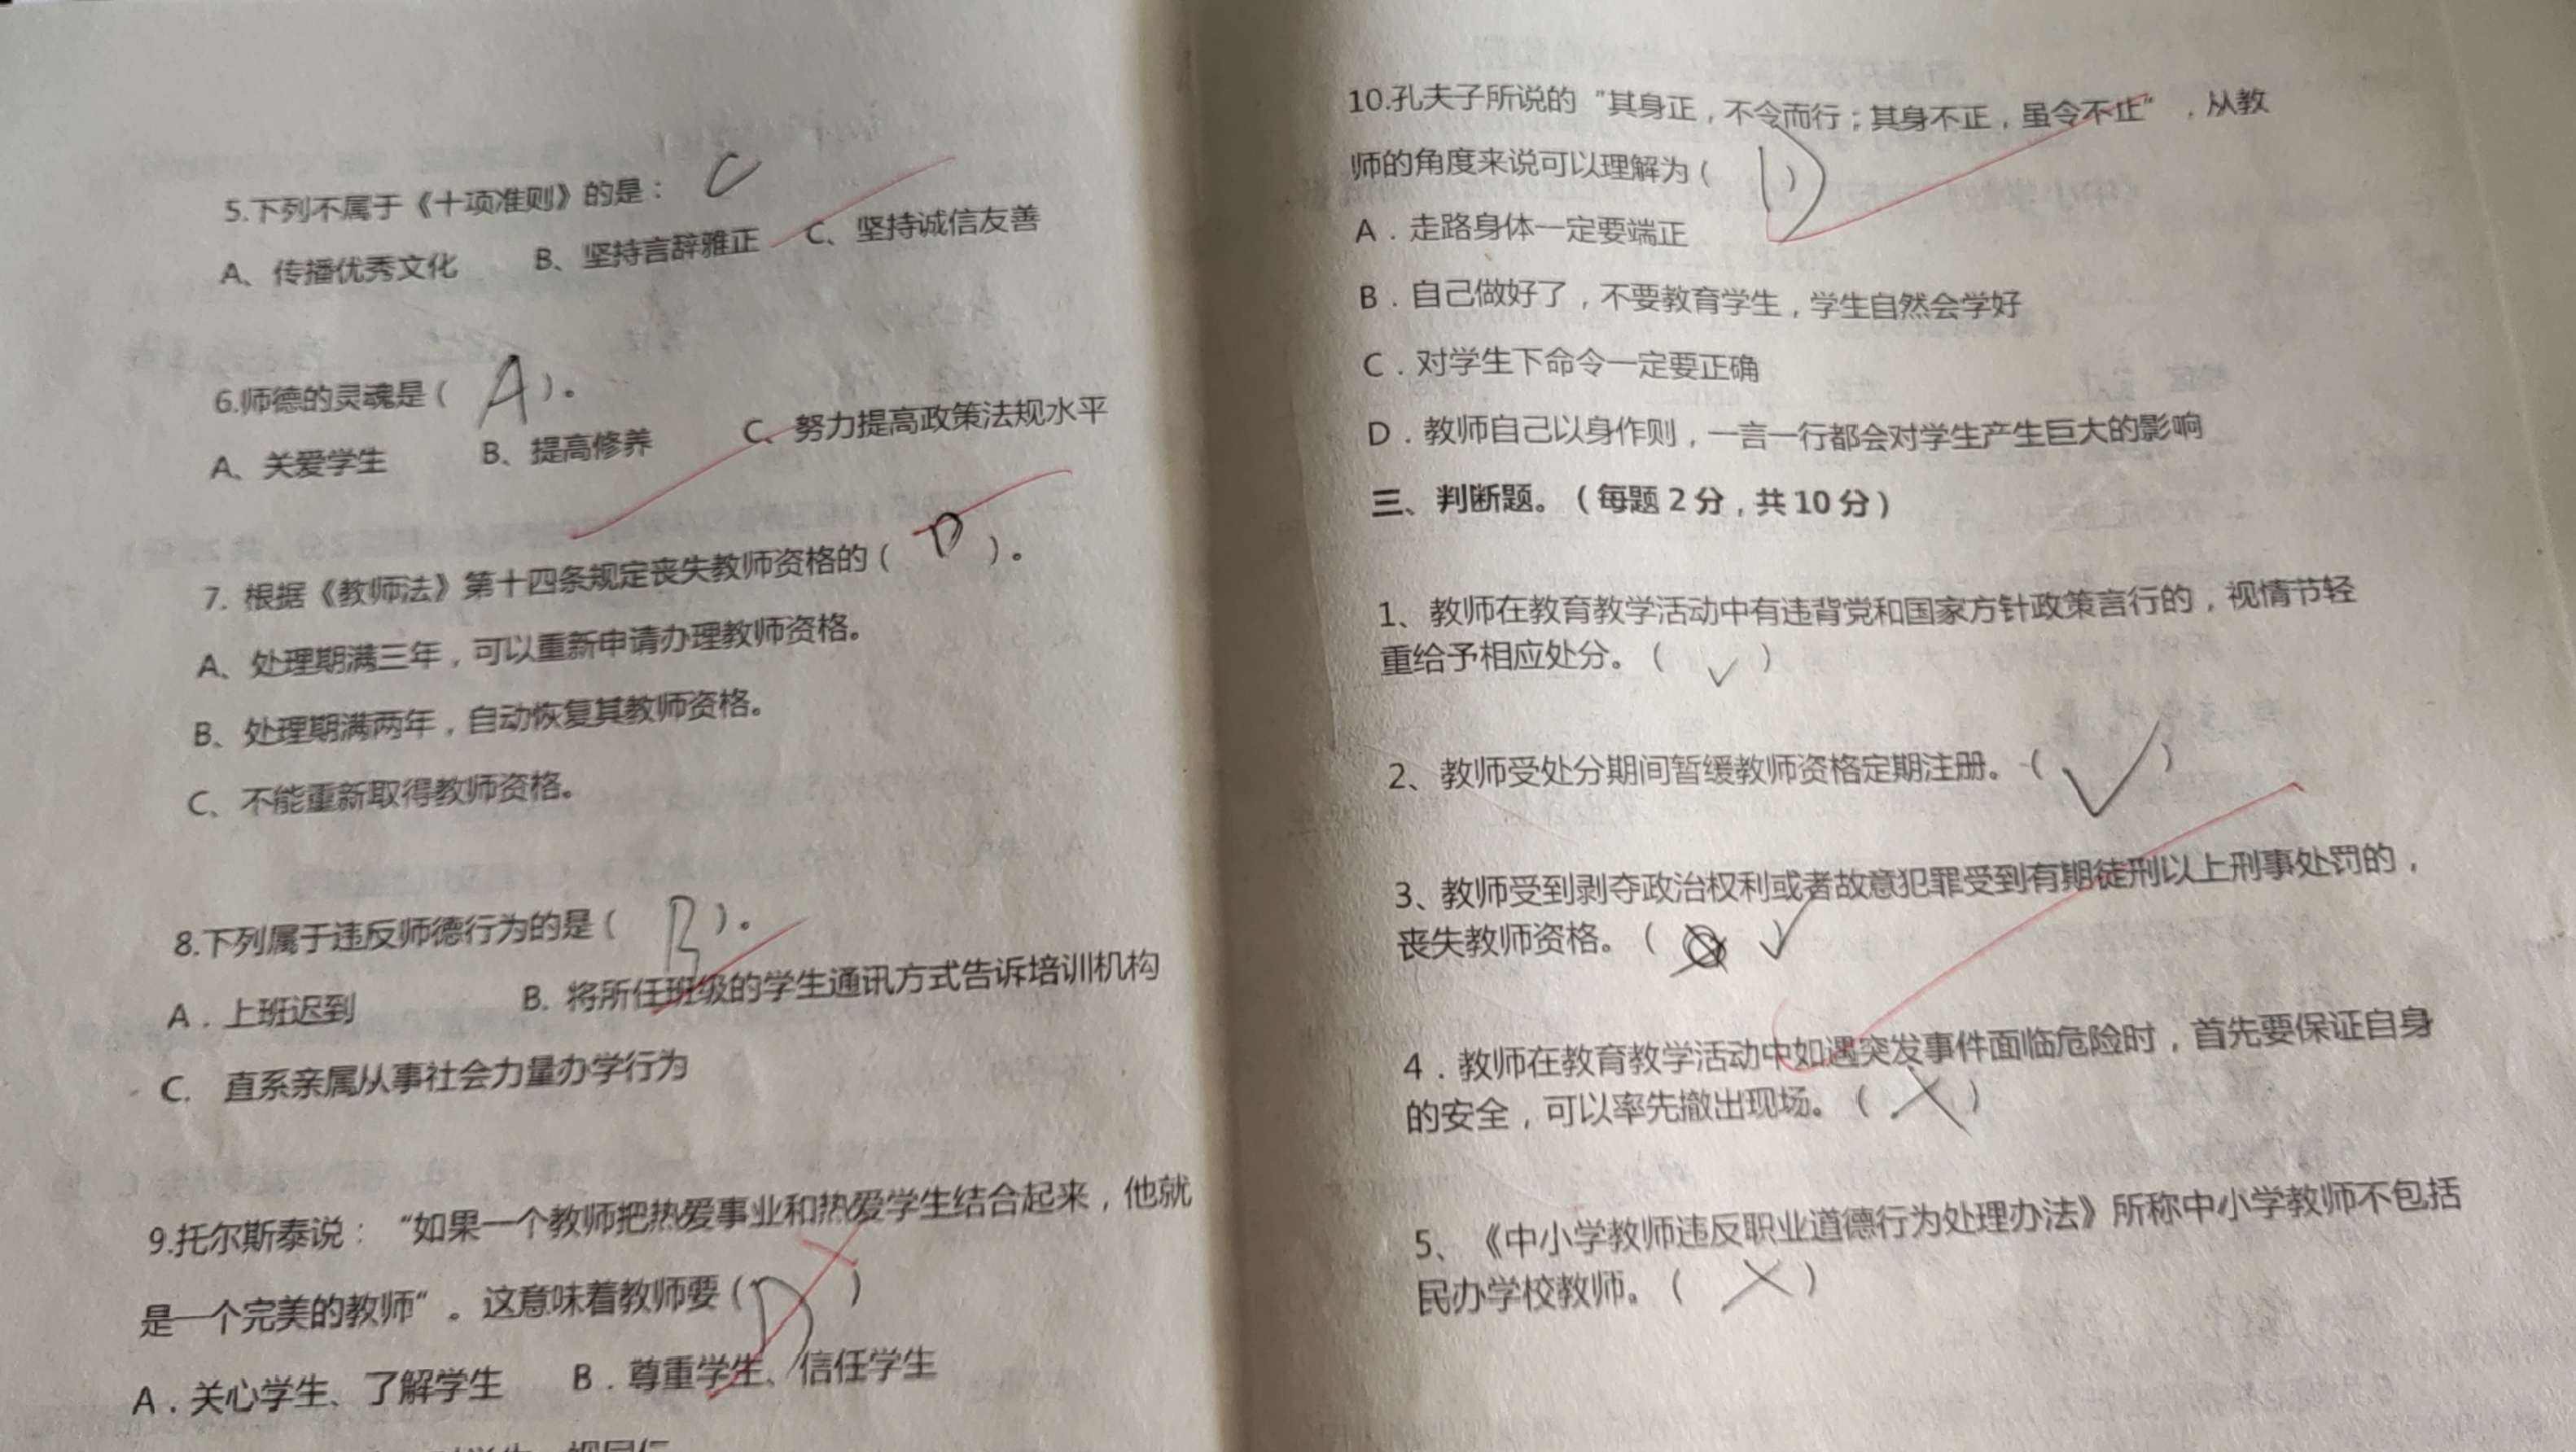 5.下列不属于《十项准则》的是： C
A、传播优秀文化 B、坚持言辞雅正 C、坚持诚信友善
6.师德的灵魂是（ A ）。
A、关爱学生 B、提高修养 C、努力提高政策法规水平
7. 根据《教师法》第十四条规定丧失教师资格的（ D ）。
A、处理期满三年，可以重新申请办理教师资格。
B、处理期满两年，自动恢复其教师资格。
C、不能重新取得教师资格。
8.下列属于违反师德行为的是（ B ）。
A．上班迟到 B. 将所任班级的学生通讯方式告诉培训机构
C. 直系亲属从事社会力量办学行为
9.托尔斯泰说：“如果一个教师把热爱事业和热爱学生结合起来，他就
是一个完美的教师”。这意味着教师要（ D ）
A．关心学生、了解学生 B．尊重学生、信任学生
10.孔夫子所说的“其身正，不令而行；其身不正，虽令不止”，从教
师的角度来说可以理解为（ D ）
A．走路身体一定要端正
B．自己做好了，不要教育学生，学生自然会学好
C．对学生下命令一定要正确
D．教师自己以身作则，一言一行都会对学生产生巨大的影响
三、判断题。（每题2分，共10分）
1、教师在教育教学活动中有违背党和国家方针政策言行的，视情节轻
重给予相应处分。（ ✓ ）
2、教师受处分期间暂缓教师资格定期注册。（ ✓ ）
3、教师受到剥夺政治权利或者故意犯罪受到有期徒刑以上刑事处罚的，
丧失教师资格。（ ✓
4．教师在教育教学活动中如遇突发事件面临危险时，首先要保证自身
的安全，可以率先撤出现场。（ × ）
5、《中小学教师违反职业道德行为处理办法》所称中小学教师不包括
民办学校教师。（ × ）